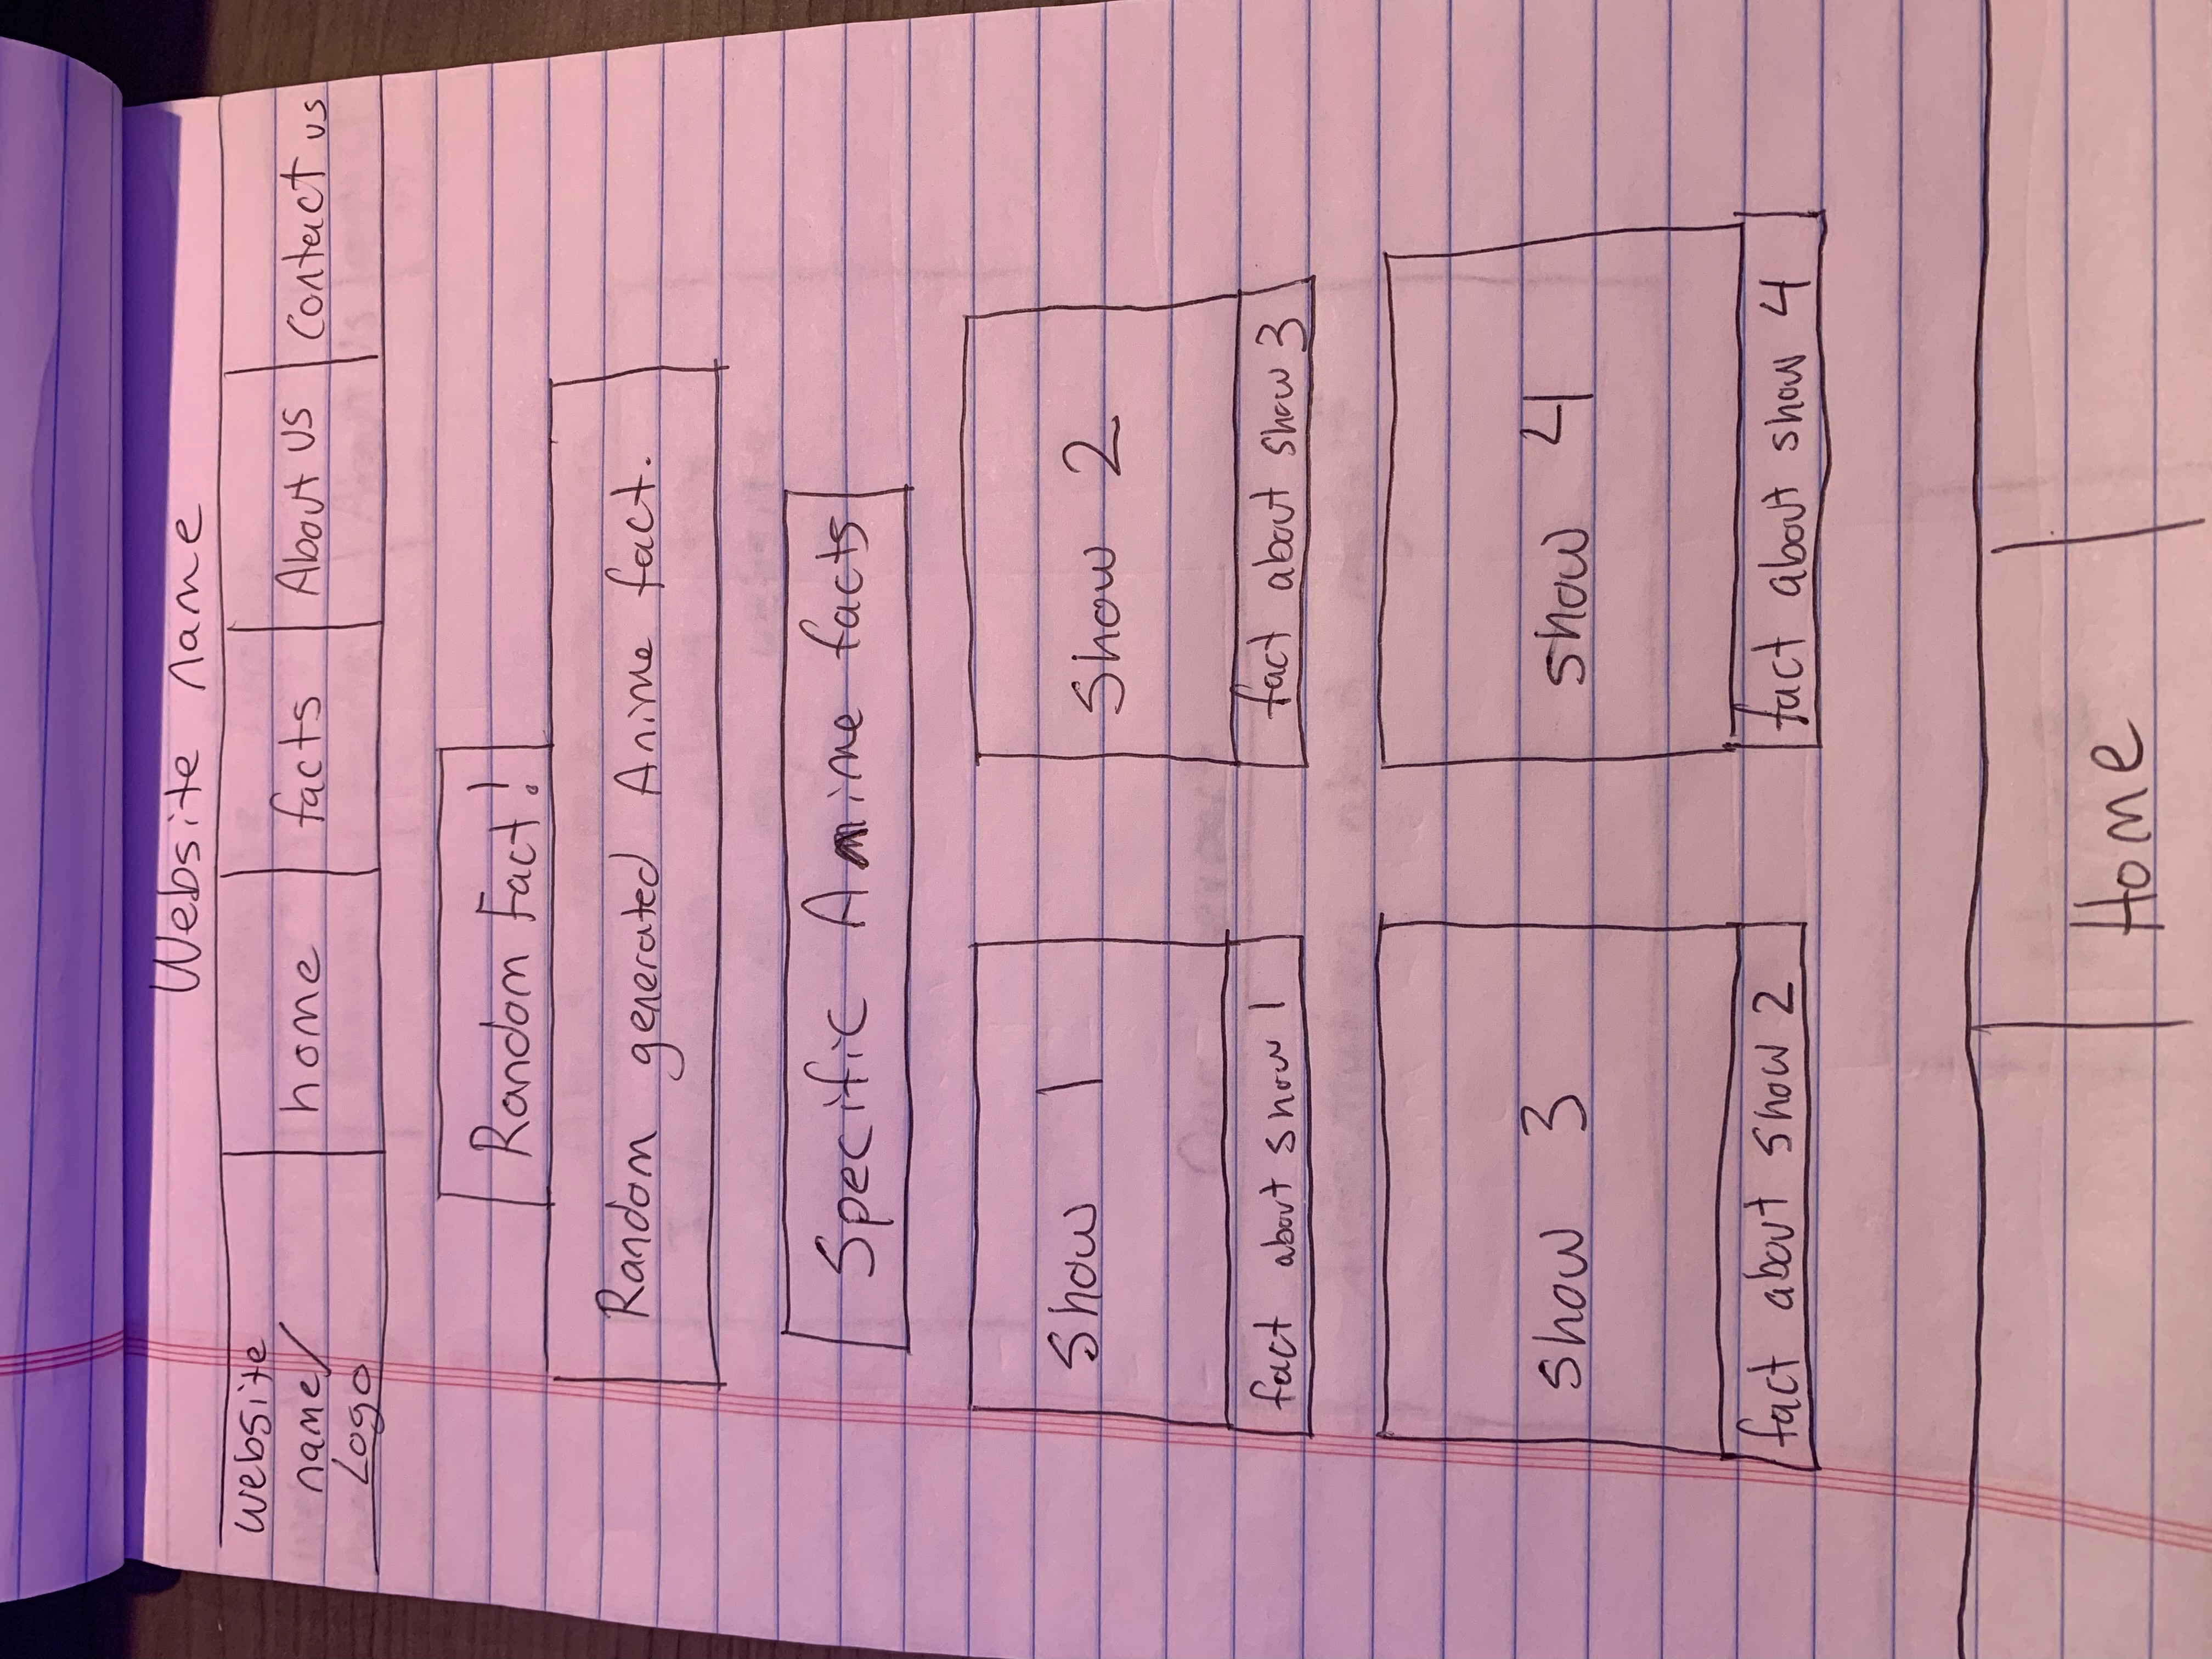 Website name
website
name/
Logo
home
facts
About us
Contact us
Random Fact!
Random generated Anime fact.
Specific Anime facts
Show 1
Show 2
fact about show 1
fact about show 3
show 3
show 4
fact about show 2
fact about show 4
Home